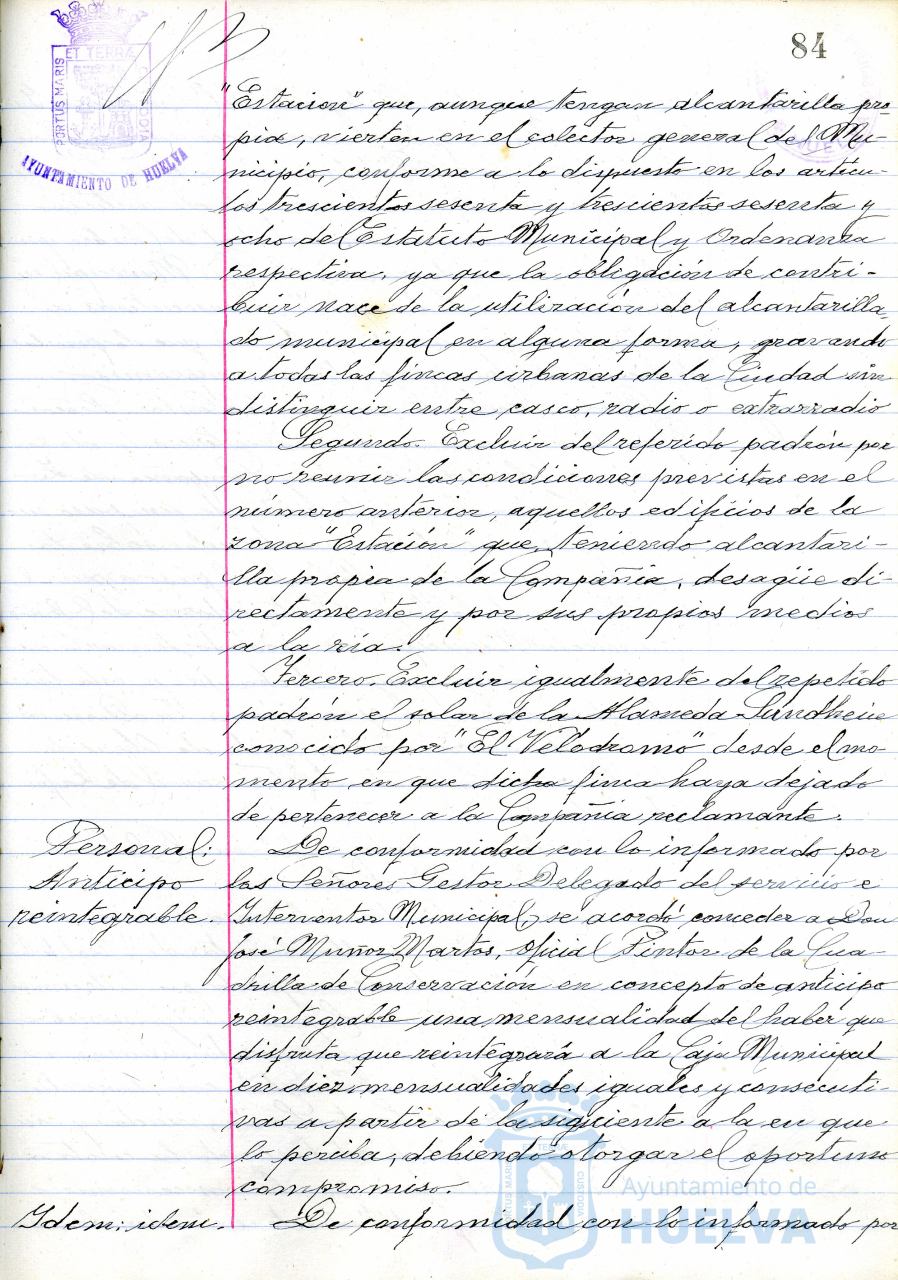 84
PORTUS MARIS ET TERRÆ CUSTODIA
AYUNTAMIENTO DE HUELVA
"Estación" que, aunque tengan alcantarilla pro-
pia, vierten en el colector general del Mu-
nicipio, conforme a lo dispuesto en los artícu-
los trescientos sesenta y trescientos sesenta y
ocho del Estatuto Municipal y Ordenanza
respectiva, ya que la obligación de contri-
buir nace de la utilización del alcantarilla-
do municipal en alguna forma, gravando
a todas las fincas urbanas de la Ciudad sin
distinguir entre casco, radio o extrarradio
Segundo. Excluir del referido padrón por
no reunir las condiciones previstas en el
número anterior, aquellos edificios de la
zona "Estación" que, teniendo alcantari-
lla propia de la Compañía, desagüe di-
rectamente y por sus propios medios
a la ría.
Tercero. Excluir igualmente del repetido
padrón el solar de la Alameda Sundheim
conocido por "El Velódromo" desde el mo-
mento en que dicha finca haya dejado
de pertenecer a la Compañía reclamante.
Personal:
Anticipo
reintegrable.
De conformidad con lo informado por
los Señores Gestor Delegado del servicio e
Interventor Municipal, se acordó conceder a Don
José Muñoz Martos, oficial Pintor de la Cua-
drilla de Conservación en concepto de anticipo
reintegrable una mensualidad del haber que
disfruta que reintegrará a la Caja Municipal
en diez mensualidades iguales y consecuti-
vas a partir de la siguiente a la en que
lo perciba, debiendo otorgar el oportuno
compromiso.
Idem: idem.
De conformidad con lo informado por
Ayuntamiento de
HUELVA